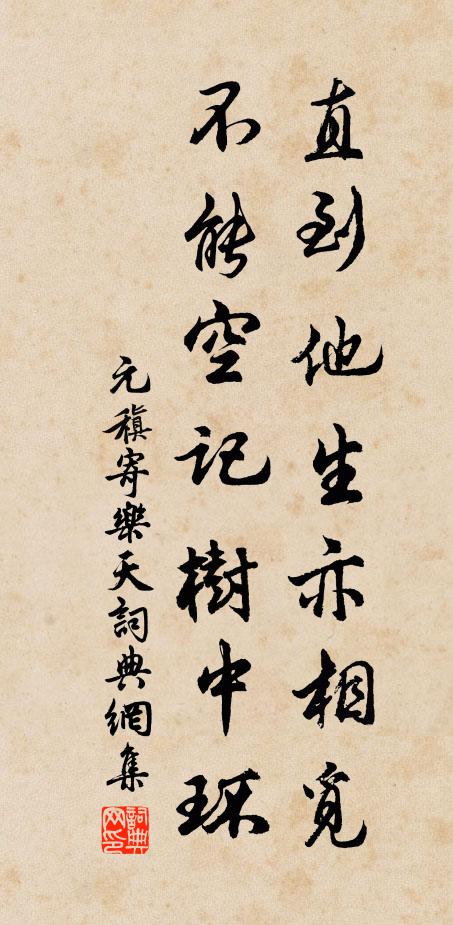 直到他生亦相覓
不能空記樹中環
元稹寄樂天詞典網集
詞典网印